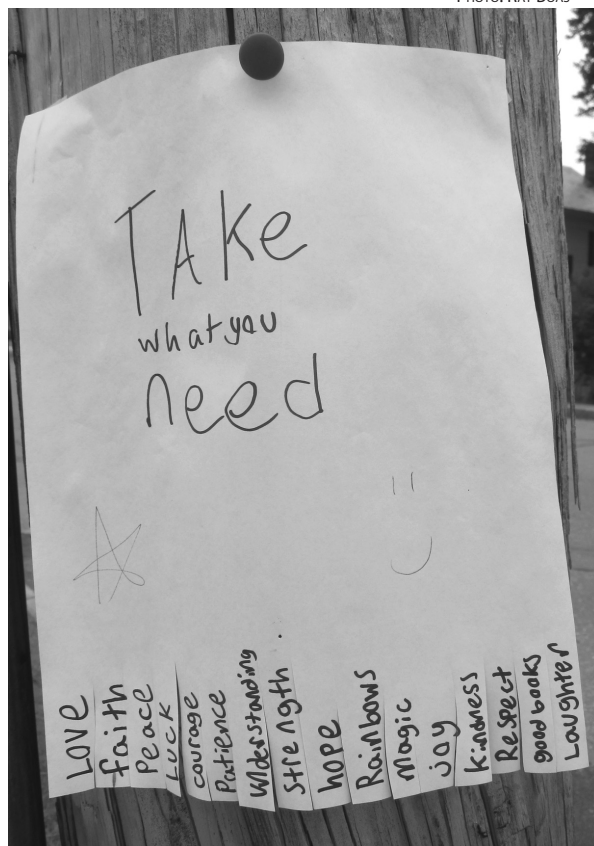 TAke
what you
need
Love
faith
Peace
Luck
courage
Patience
Understanding
strength
hope
Rainbows
magic
joy
kindness
Respect
good books
Laughter